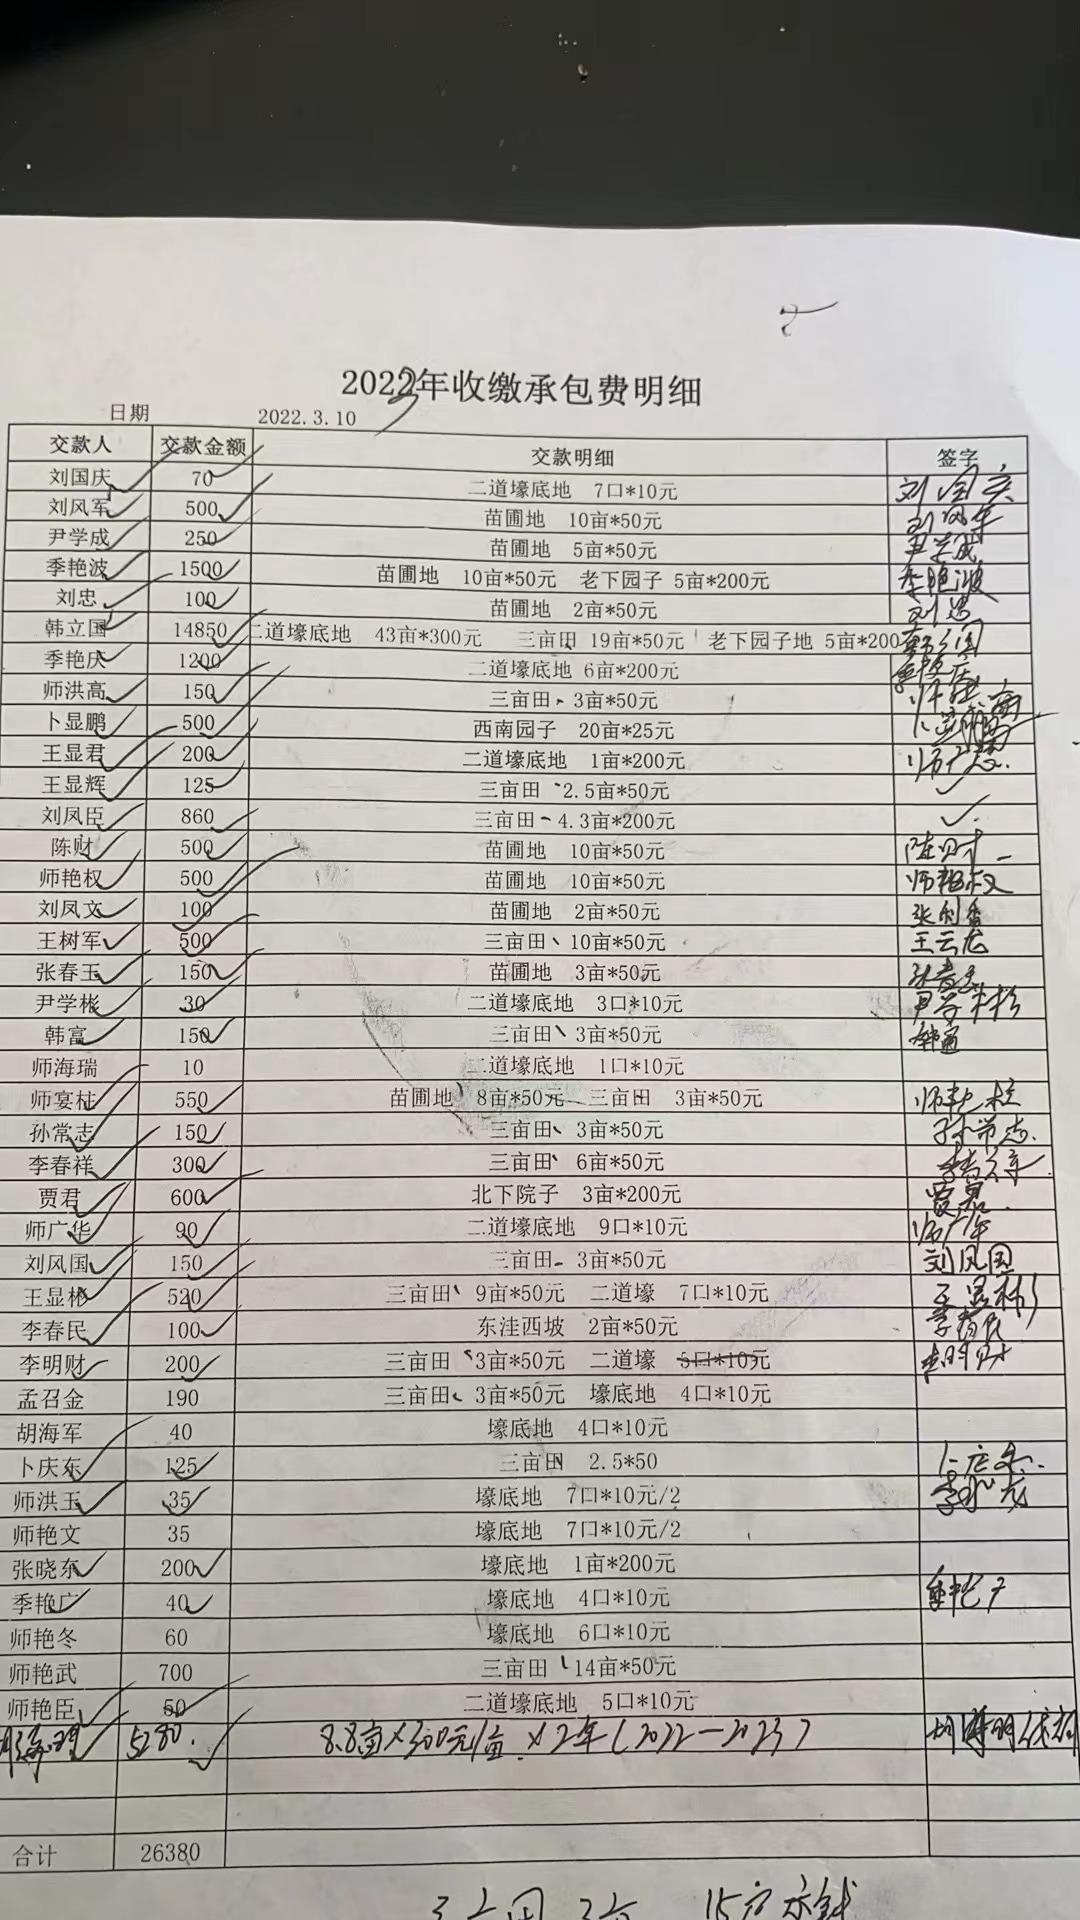 2023年收缴承包费明细
日期 2022.3.10
交款人 交款金额 交款明细 签字
刘国庆 70 二道壕底地 7口*10元 刘国庆
刘风军 500 苗圃地 10亩*50元 刘风军
尹学成 250 苗圃地 5亩*50元 尹学成
季艳波 1500 苗圃地 10亩*50元 老下园子 5亩*200元 季艳波
刘忠 100 苗圃地 2亩*50元 刘忠
韩立国 14850 二道壕底地 43亩*300元 三亩田 19亩*50元 老下园子地 5亩*200 韩立国
季艳庆 1200 二道壕底地 6亩*200元 季艳庆
师洪高 150 三亩田 3亩*50元 师洪高
卜显鹏 500 西南园子 20亩*25元 卜显鹏
王显君 200 二道壕底地 1亩*200元
王显辉 125 三亩田 2.5亩*50元
刘凤臣 860 三亩田 4.3亩*200元
陈财 500 苗圃地 10亩*50元 陈财
师艳权 500 苗圃地 10亩*50元 师艳权
刘凤文 100 苗圃地 2亩*50元
王树军 500 三亩田 10亩*50元 王云龙
张春玉 150 苗圃地 3亩*50元 张春玉
尹学彬 30 二道壕底地 3口*10元 尹学彬
韩富 150 三亩田 3亩*50元 韩富
师海瑞 10 二道壕底地 1口*10元
师宴柱 550 苗圃地 8亩*50元 三亩田 3亩*50元
孙常志 150 三亩田 3亩*50元 孙常志
李春祥 300 三亩田 6亩*50元
贾君 600 北下院子 3亩*200元 贾君
师广华 90 二道壕底地 9口*10元 师广华
刘风国 150 三亩田 3亩*50元 刘风国
王显彬 520 三亩田 9亩*50元 二道壕 7口*10元 王显彬
李春民 100 东洼西坡 2亩*50元 李春民
李明财 200 三亩田 3亩*50元 二道壕 5口*10元 李明财
孟召金 190 三亩田 3亩*50元 壕底地 4口*10元
胡海军 40 壕底地 4口*10元
卜庆东 125 三亩田 2.5*50 卜庆东
师洪玉 35 壕底地 7口*10元/2
师艳文 35 壕底地 7口*10元/2
张晓东 200 壕底地 1亩*200元
季艳广 40 壕底地 4口*10元 季艳广
师艳冬 60 壕底地 6口*10元
师艳武 700 三亩田 14亩*50元
师艳臣 50 二道壕底地 5口*10元
5280. 8.8亩×300元/亩×2年(2022—2023)
合计 26380
三亩田 3亩